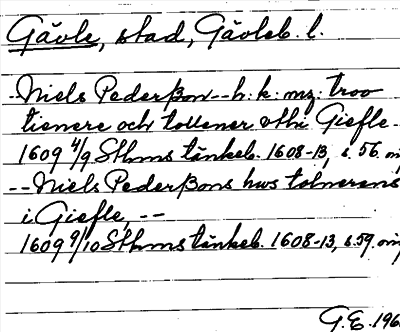 Gävle, stad, Gävleb. l.
-Niels Pederßon--h: k: mz: troo
tienere och tollener vthi Giefle-
1609 4/9 Sthms tänkeb. 1608-13, s. 56.
--Niels Pederßons hws tolnerens
i Giefle, --
1609 9/10 Sthms tänkeb. 1608-13, s. 59.
G.E. 196